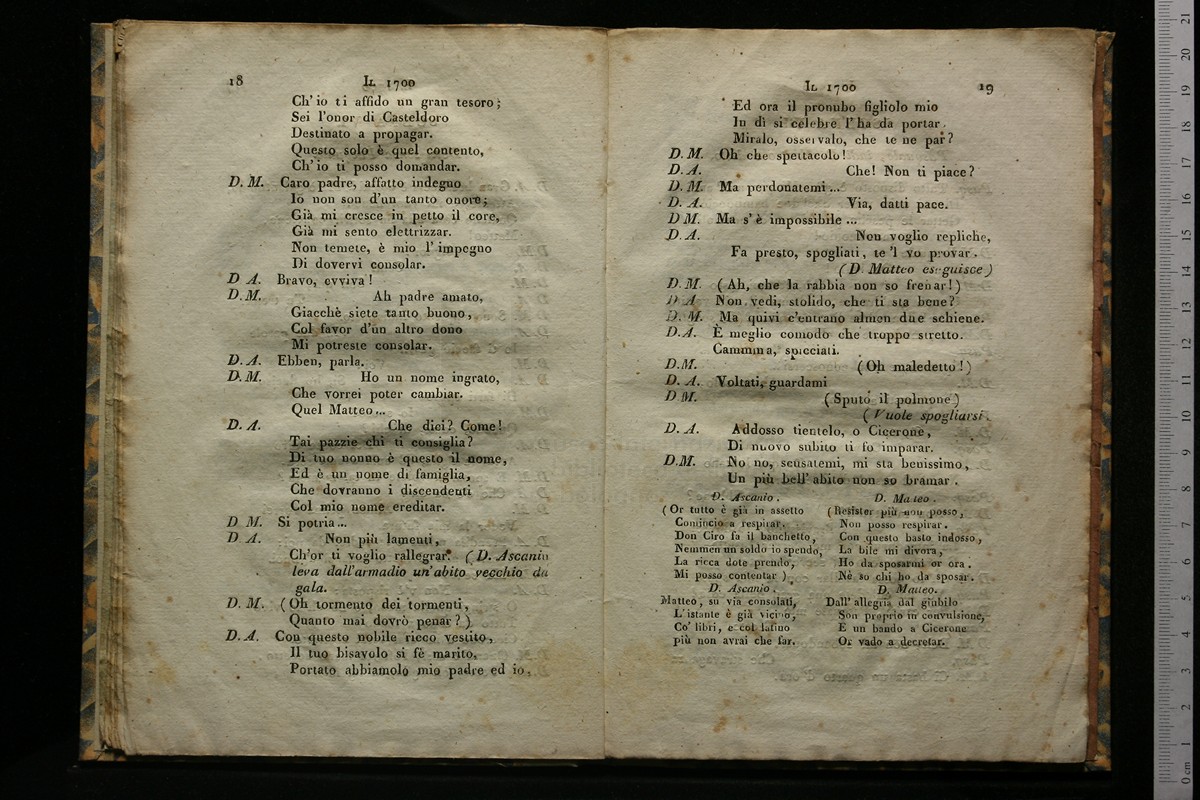 18 Il 1700
Ch' io ti affido un gran tesoro;
Sei l'onor di Casteldoro
Destinato a propagar.
Questo solo è quel contento,
Ch' io ti posso domandar.
D. M. Caro padre, affatto indegno
Io non son d'un tanto onore;
Già mi cresce in petto il core,
Già mi sento elettrizzar.
Non temete, è mio l' impegno
Di dovervi consolar.
D A. Bravo, evviva!
D. M. Ah padre amato,
Giacchè siete tanto buono,
Col favor d'un altro dono
Mi potreste consolar.
D. A. Ebben, parla.
D. M. Ho un nome ingrato,
Che vorrei poter cambiar.
Quel Matteo...
D. A. Che dici? Come!
Tai pazzie chi ti consiglia?
Di tuo nonno è questo il nome,
Ed è un nome di famiglia,
Che dovranno i discendenti
Col mio nome ereditar.
D M. Si potria...
D A. Non più lamenti,
Ch'or ti voglio rallegrar. (D. Ascanio
leva dall'armadio un'abito vecchio da
gala.
D. M. (Oh tormento dei tormenti,
Quanto mai dovrò penar?)
D. A. Con questo nobile ricco vestito,
Il tuo bisavolo si fè marito.
Portato abbiamolo mio padre ed io,
Il 1700 19
Ed ora il pronubo figliolo mio
In dì sì celebre l' ha da portar.
Miralo, osservalo, che te ne par?
D. M. Oh che spettacolo!
D. A. Che! Non ti piace?
D. M. Ma perdonatemi...
D. A. Via, datti pace.
D M. Ma s' è impossibile...
D. A. Non voglio repliche,
Fa presto, spogliati, te 'l vo provar.
(D. Matteo eseguisce)
D. M. (Ah, che la rabbia non so frenar!)
D A Non vedi, stolido, che ti sta bene?
D. M. Ma quivi c'entrano almen due schiene.
D. A. È meglio comodo che troppo stretto.
Cammina, spicciati.
D. M. (Oh maledetto!)
D. A. Voltati, guardami
D M. (Sputo il polmone)
(Vuole spogliarsi.
D. A. Addosso tientelo, o Cicerone,
Di nuovo subito ti fo imparar.
D. M. No no, scusatemi, mi sta benissimo,
Un più bell' abito non so bramar.
D. Ascanio.
(Or tutto è già in assetto
Comincio a respirar.
Don Ciro fa il banchetto,
Nemmen un soldo io spendo,
La ricca dote prendo,
Mi posso contentar)
D. Ascanio.
Matteo, su via consolati,
L'istante è già vicino,
Co' libri, e col latino
più non avrai che far.
D. Matteo.
(Resister più non posso,
Non posso respirar.
Con questo basto indosso,
La bile mi divora,
Ho da sposarmi or ora.
Nè so chi ho da sposar.
D. Matteo.
Dall' allegria dal giubilo
Son proprio in convulsione,
E un bando a Cicerone
Or vado a decretar.
0 cm 1 2 3 4 5 6 7 8 9 10 11 12 13 14 15 16 17 18 19 20 21